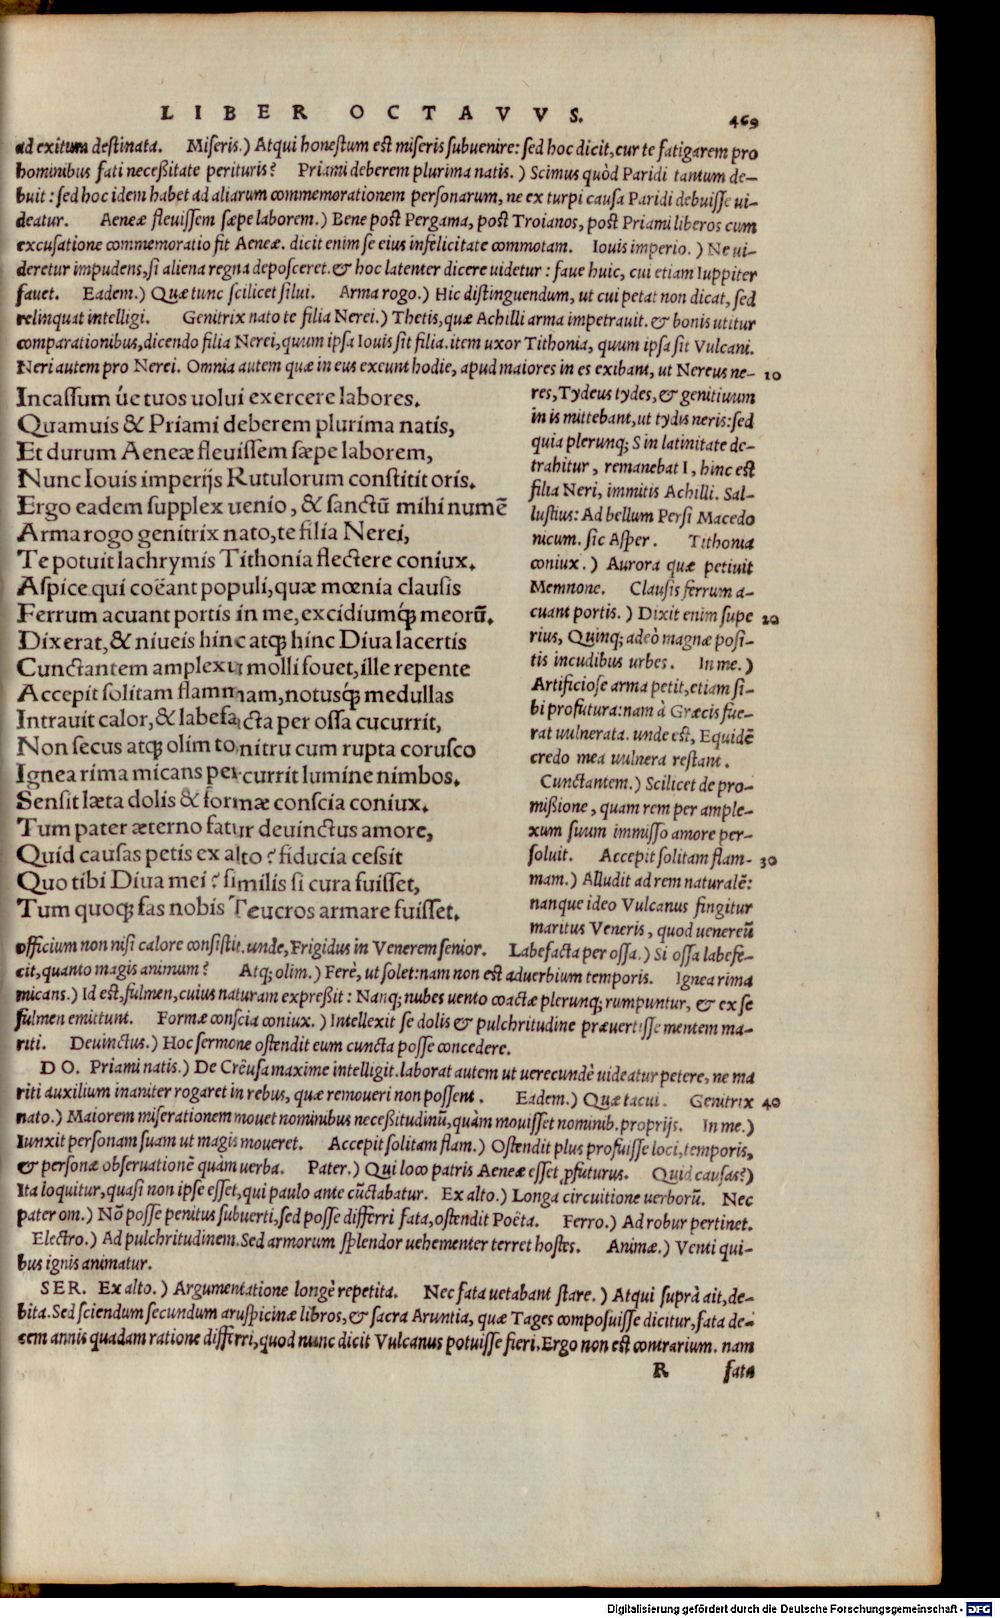 LIBER OCTAVVS. 469
ad exitum destinata. Miseris.) Atqui honestum est miseris subuenire: sed hoc dicit, cur te fatigarem pro
hominibus fati neceßitate perituris? Priami deberem plurima natis.) Scimus quòd Paridi tantum de-
buit: sed hoc idem habet ad aliarum commemorationem personarum, ne ex turpi causa Paridi debuisse ui-
deatur. Aeneæ fleuissem sæpe laborem.) Bene post Pergama, post Troianos, post Priami liberos cum
excusatione commemoratio fit Aeneæ. dicit enim se eius infelicitate commotam. Iouis imperio.) Ne ui-
deretur impudens, si aliena regna deposceret. & hoc latenter dicere uidetur: faue huic, cui etiam Iuppiter
fauet. Eadem.) Quæ tunc scilicet silui. Arma rogo.) Hic distinguendum, ut cui petat non dicat, sed
relinquat intelligi. Genitrix nato te filia Nerei.) Thetis, quæ Achilli arma impetrauit. & bonis utitur
comparationibus, dicendo filia Nerei, quum ipsa Iouis sit filia. item uxor Tithonia, quum ipsa sit Vulcani.
Neri autem pro Nerei. Omnia autem quæ in eus exeunt hodie, apud maiores in es exibant, ut Nereus ne- 10
Incassum úe tuos uolui exercere labores.
Quamuis & Priami deberem plurima natis,
Et durum Aeneæ fleuissem sæpe laborem,
Nunc Iouis imperijs Rutulorum constitit oris.
Ergo eadem supplex uenio, & sanctū mihi numē
Arma rogo genitrix nato, te filia Nerei,
Te potuit lachrymis Tithonia flectere coniux.
Aspice qui coëant populi, quæ mœnia clausis
Ferrum acuant portis in me, excidiumq́; meorū.
Dixerat, & niueis hinc atq; hinc Diua lacertis
Cunctantem amplexu molli fouet, ille repente
Accepit solitam flammam, notusq́; medullas
Intrauit calor, & labefacta per ossa cucurrit,
Non secus atq; olim tonitru cum rupta corusco
Ignea rima micans percurrit lumine nimbos.
Sensit læta dolis & formæ conscia coniux.
Tum pater æterno fatur deuinctus amore,
Quid causas petis ex alto? fiducia cessit
Quo tibi Diua mei? similis si cura fuisset,
Tum quoq; fas nobis Teucros armare fuisset.
res, Tydeus tydes, & genitiuum
in is mittebant, ut tydis neris: sed
quia plerunq; S in latinitate de-
trahitur, remanebat I, hinc est
filia Neri, immitis Achilli. Sal-
lustius: Ad bellum Persi Macedo
nicum. sic Asper. Tithonia
coniux.) Aurora quæ petiuit
Memnone. Clausis ferrum a-
cuant portis.) Dixit enim supe 20
rius, Quinq; adeò magnæ posi-
tis incudibus urbes. In me.)
Artificiose arma petit, etiam si-
bi profutura: nam à Græcis fue-
rat uulnerata. unde est, Equidē
credo mea uulnera restant.
Cunctantem.) Scilicet de pro-
mißione, quam rem per ample-
xum suum immisso amore per-
soluit. Accepit solitam flam- 30
mam.) Alludit ad rem naturalē:
nanque ideo Vulcanus fingitur
maritus Veneris, quod venereū
officium non nisi calore consistit. unde, Frigidus in Venerem senior. Labefacta per ossa.) Si ossa labefe-
cit, quanto magis animum? Atq; olim.) Ferè, ut solet: nam non est aduerbium temporis. Ignea rima
micans.) Id est, fulmen, cuius naturam expreßit: Nanq; nubes uento coactæ plerunq; rumpuntur, & ex se
fulmen emittunt. Formæ conscia coniux.) Intellexit se dolis & pulchritudine præuertisse mentem ma-
riti. Deuinctus.) Hoc sermone ostendit eum cuncta posse concedere.
DO. Priami natis.) De Crëusa maxime intelligit. laborat autem ut uerecundè uideatur petere, ne ma
riti auxilium inaniter rogaret in rebus, quæ remoueri non possent. Eadem.) Quæ tacui. Genitrix 40
nato.) Maiorem miserationem mouet nominibus neceßitudinū, quàm mouisset nominib. proprijs. In me.)
Iunxit personam suam ut magis moueret. Accepit solitam flam.) Ostendit plus profuisse loci, temporis,
& personæ obseruationē quàm uerba. Pater.) Qui loco patris Aeneæ esset ꝓfuturus. Quid causas?)
Ita loquitur, quasi non ipse esset, qui paulo ante cūctabatur. Ex alto.) Longa circuitione uerborū. Nec
pater om.) Nō posse penitus subuerti, sed posse differri fata, ostendit Poëta. Ferro.) Ad robur pertinet.
Electro.) Ad pulchritudinem. Sed armorum splendor uehementer terret hostes. Animæ.) Venti qui-
bus ignis animatur.
SER. Ex alto.) Argumentatione longè repetita. Nec fata uetabant stare.) Atqui suprà ait, de-
bita. Sed sciendum secundum aruspicinæ libros, & sacra Aruntia, quæ Tages composuisse dicitur, fata de-
cem annis quadam ratione differri, quod nunc dicit Vulcanus potuisse fieri. Ergo non est contrarium. nam
R fata
Digitalisierung gefördert durch die Deutsche Forschungsgemeinschaft - DFG